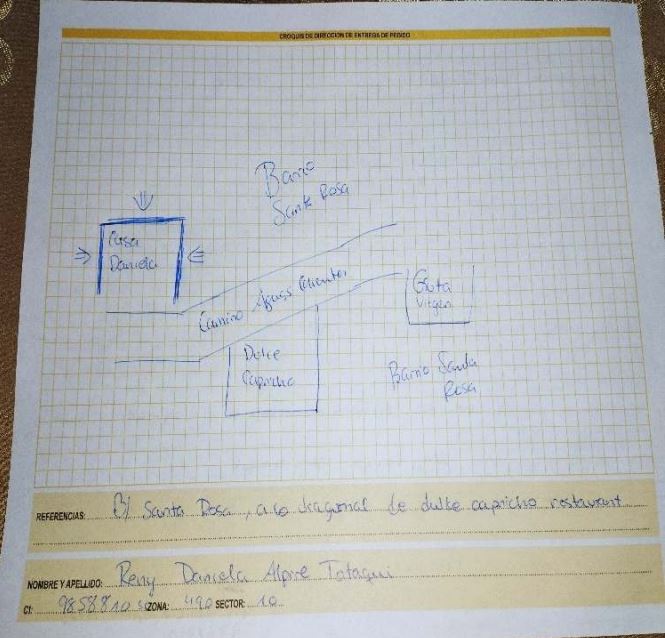 CROQUIS DE DIRECCION DE ENTREGA DE PEDIDO
Barrio
Santa Rosa
Casa
Daniela
Camino Aguas Calientes
Gruta
Virgen
Dulce
Capricho
Barrio Santa
Rosa
REFERENCIAS: B/ Santa Rosa, a lo diagonal de dulce capricho restaurant
NOMBRE Y APELLIDO: Reny Daniela
CI: ZONA: 490 SECTOR: 10